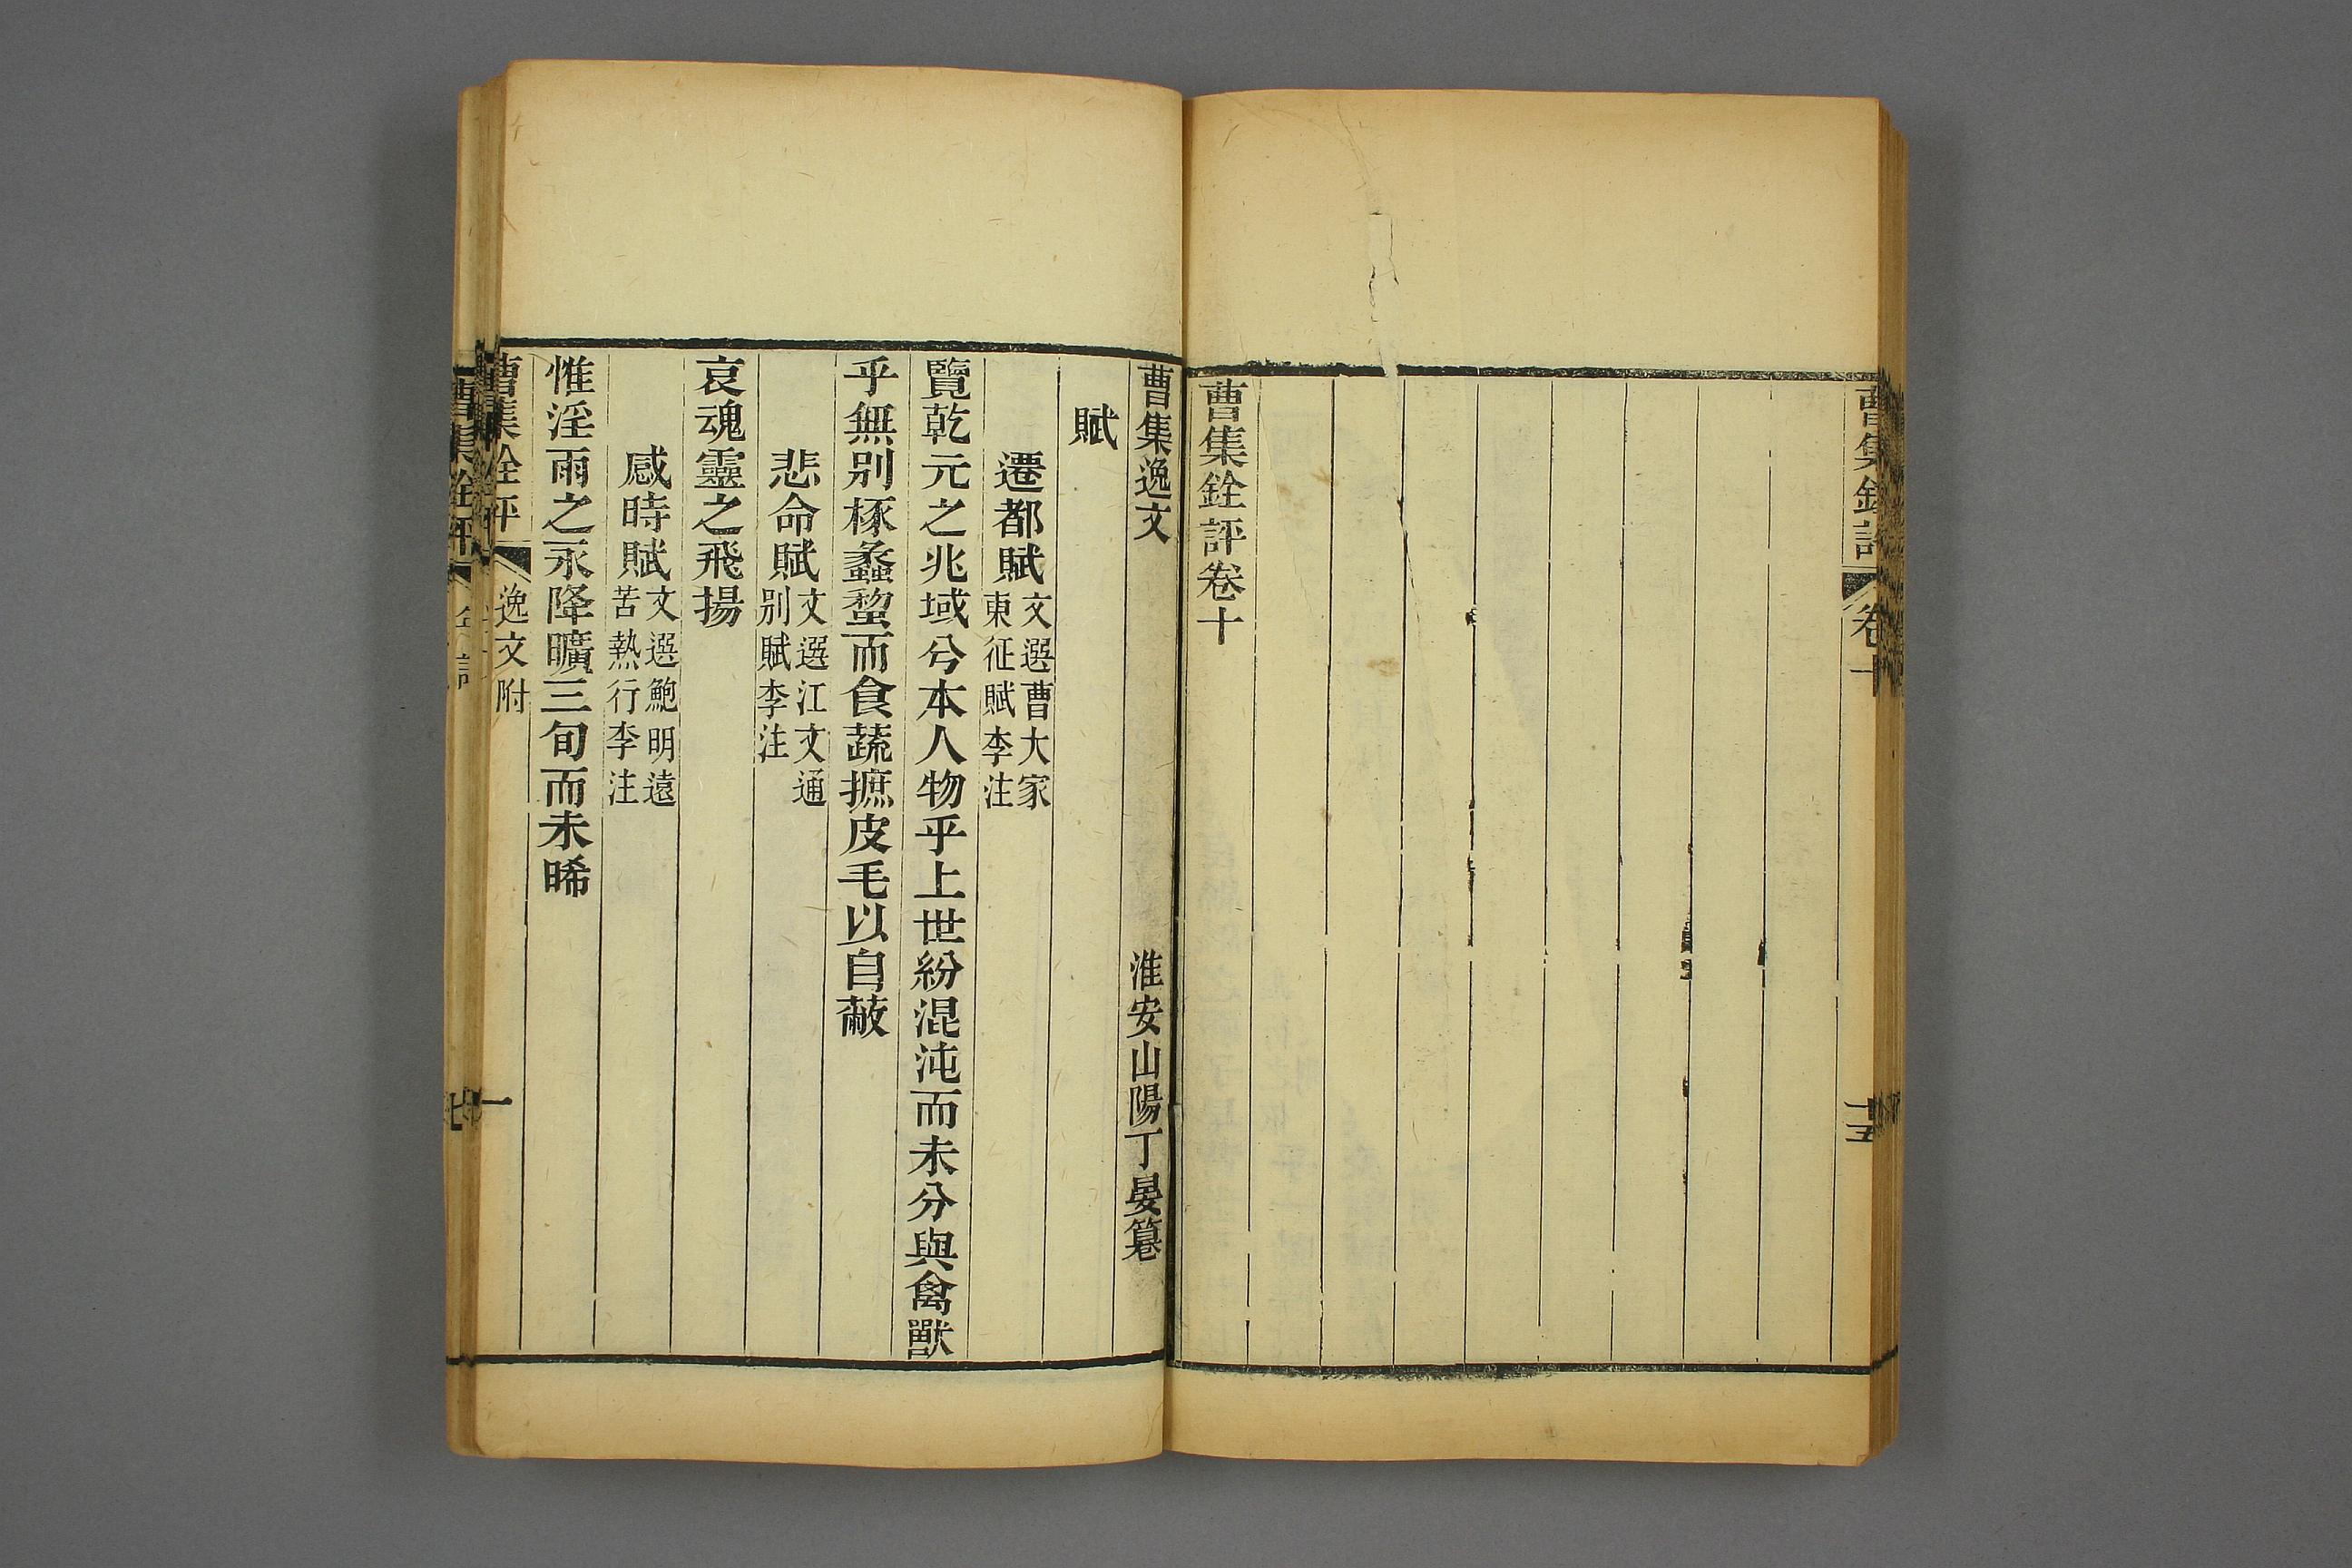 曹集銓評 卷十 十五
曹集銓評卷十
曹集逸文 淮安山陽丁晏篹
賦
遷都賦 文選曹大家東征賦李注
覽乾元之兆域兮本人物乎上世紛混沌而未分與禽獸
乎無别椓蠡蝥而食蔬摭皮毛以自蔽
悲命賦 文選江文通别賦李注
哀魂靈之飛揚
感時賦 文選鮑明遠苦熱行李注
惟淫雨之永降曠三旬而未晞
曹集銓評 逸文附 一
曹集銓評